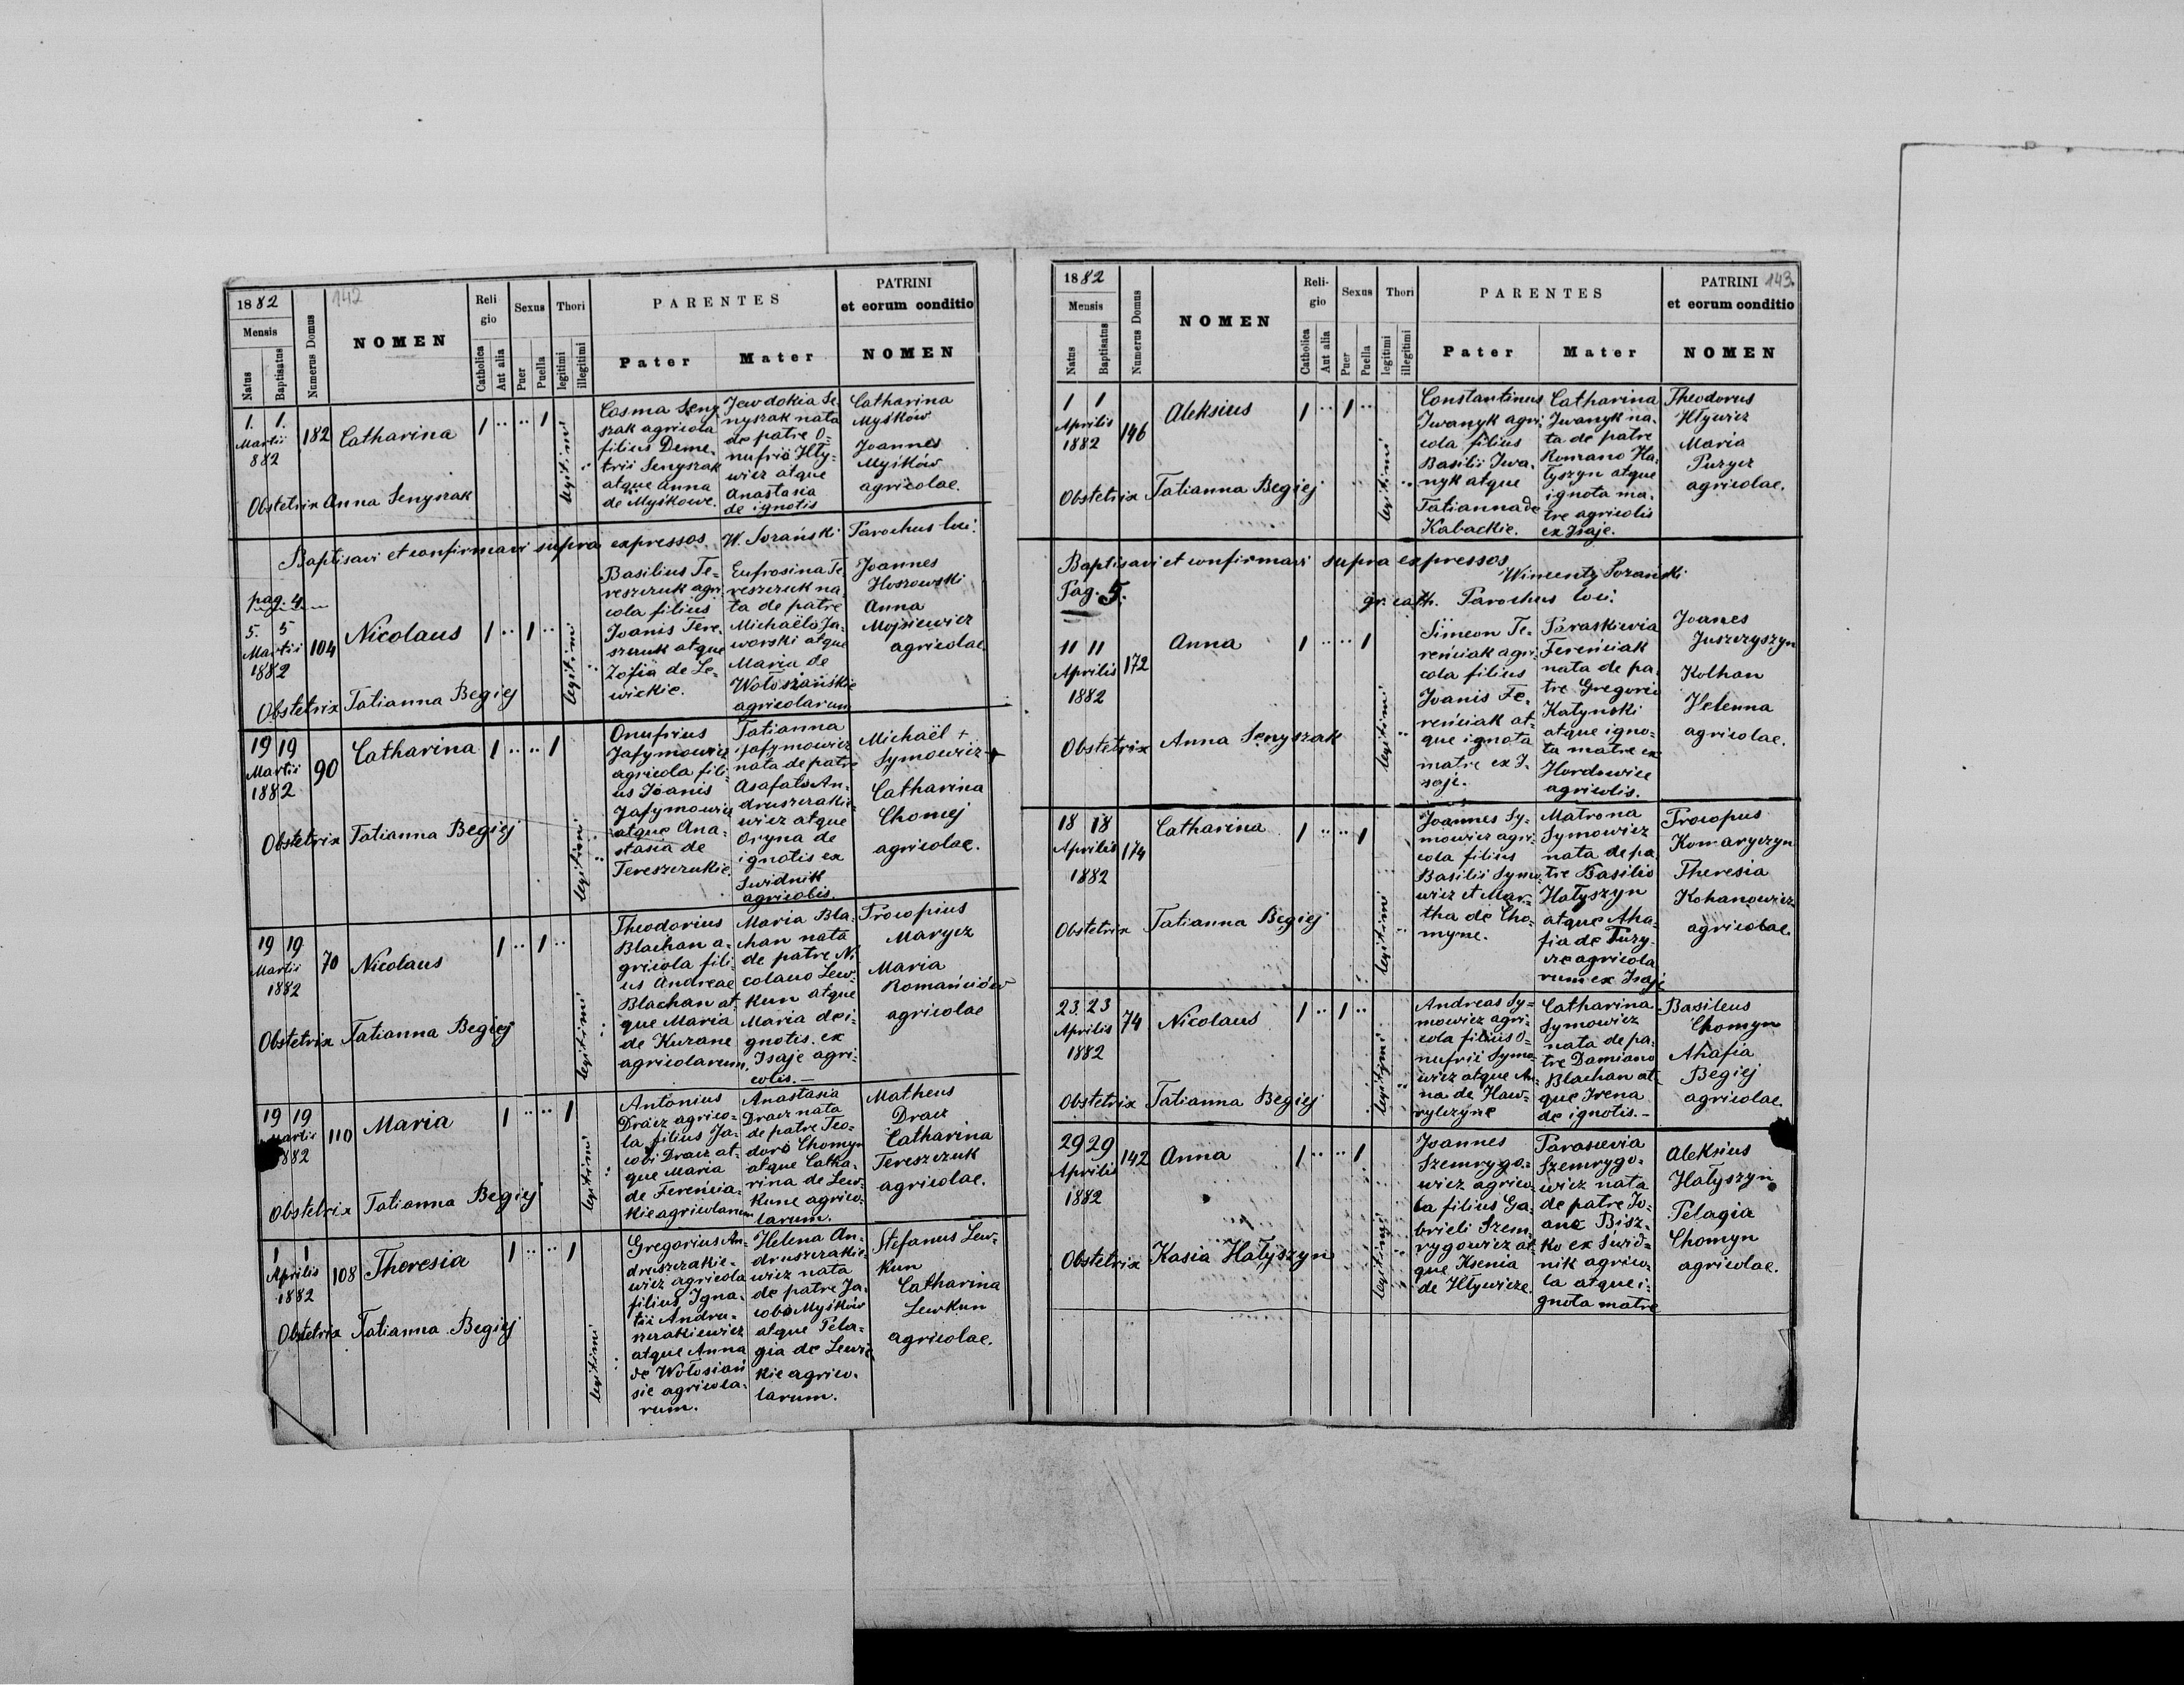 1882
142
Mensis
Natus
Baptisatus
Numerus Domus
NOMEN
Religio
Catholica
Aut alia
Sexus
Puer
Puella
Thori
legitimi
illegitimi
PARENTES
Pater
Mater
PATRINI
et eorum conditio
NOMEN
1. 1.
Martii
882
182
Catharina
1 .. .. 1
legitimi
Cosma Seny
szak agricola
filius Deme-
trii Senyszak
atque Anna
de Myśkowe.
Jewdokia Se
nyszak nata
de patre O=
nufrio Hły-
wicz atque
Anastasia
de ignotis
Catharina
Myśków
Joannes
Myśków
agricolae.
Obstetrix Anna Senyszak
Baptisavi et confirmavi supra expressos W. Sozański Parochus loci.
pag. 4
5. 5
Martii
1882
104
Nicolaus
1 .. 1 ..
legitimi
Basilius Te=
reszczuk agri
cola filius
Joanis Tere-
szczuk atque
Zofia de Le-
wickie.
Eufrosina Te
reszczuk na
ta de patre
Michaëlo Ja-
worski atque
Maria de
Wołoszańskie
agricolarum
Joannes
Hoszowski
Anna
Mojsiewicz
agricolae
Obstetrix Tatianna Begiej
19 19
Martii
1882
90
Catharina
1 .. .. 1
legitimi
Onufrius
Jafymowicz
agricola fili-
us Joanis
Jafymowicz
atque Ana-
stasia de
Tereszczukie.
Tatianna
Jafymowicz
nata de patre
Asafato An-
druszczakie-
wicz atque
Oryna de
ignotis ex
Swidnik
agricolis.
Michaël +
Symowicz +
Catharina
Chomej
agricolae.
Obstetrix Tatianna Begiej
19 19
Martii
1882
70
Nicolaus
1 .. 1 ..
legitimi
Theodorius
Blachan a-
gricola fili-
us Andreae
Blachan at-
que Maria
de Kuzane
agricolarum.
Maria Bla-
chan nata
de patre Ni
colauo Lew-
kun atque
Maria de i-
gnotis ex
Isaje agri-
colis.-
Procopius
Marycz
Maria
Romańciów
agricolae
Obstetrix Tatianna Begiej
19 19
Martii
1882
110
Maria
1 .. .. 1
legitimi
Antonius
Dracz agrico-
la filius Ja-
cobi Dracz at-
que Maria
de Fereńcia-
kie agricolarum
Anastasia
Dracz nata
de patre Teo-
doro Chomyn
atque Catha-
rina de Lew-
kune agrico-
larum.
Matheus
Dracz
Catharina
Tereszczuk
agricolae.
Obstetrix Tatianna Begiej
1 1
Aprilis
1882
108
Theresia
1 .. .. 1
legitimi
Gregorius An-
druszczakie-
wicz agricola
filius Igna-
tii Andru-
szczakiewicz
atque Anna
de Wołosiań
sie agricola-
rum.
Helena An-
druszczakie-
wicz nata
de patre Ja-
cobo Myśków
atque Pela-
gia de Lewic
kie agrico-
larum.
Stefanus Lew-
kun
Catharina
Lewkun
agricolae.
Obstetrix Tatianna Begiej
1882
Mensis
Natus
Baptisatus
Numerus Domus
NOMEN
Religio
Catholica
Aut alia
Sexus
Puer
Puella
Thori
legitimi
illegitimi
PARENTES
Pater
Mater
PATRINI 143.
et eorum conditio
NOMEN
1 1
Aprilis
1882
146
Aleksius
1 .. 1 ..
legitimi
Constantinus
Iwanyk agri-
cola filius
Basilii Iwa-
nyk atque
Tatianna de
Kabackie.
Catharina
Iwanyk na-
ta de patre
Romano Ha-
łyszyn atque
ignota ma-
tre agricolis
ex Isaje.
Theodorus
Hływicz
Maria
Puzycz
agricolae.
Obstetrix Tatianna Begiej
Baptisavi et confirmavi supra expressos
Wincenty Sozański
gr. cath. Parochus loci.
Pag. 5.
11 11
Aprilis
1882
172
Anna
1 .. .. 1
legitimi
Simeon Fe-
reńciak agri-
cola filius
Joanis Fe-
reńciak at-
que ignota
matre ex I-
saje.
Paraskiewia
Fereńciak
nata de pa-
tre Gregorio
Katynski
atque igno-
ta matre ex
Hordowice
agricolis.
Joanes
Juszczyszyn
Kolhan
Helenna
agricolae.
Obstetrix Anna Senyszak
18 18
Aprilis
1882
174
Catharina
1 .. .. 1
legitimi
Joannes Sy-
mowicz agri-
cola filius
Basilii Symo-
wicz et Mar-
tha de Cho-
myne.
Matrona
Symowicz
nata de pa-
tre Basilio
Hałyszyn
atque Aha-
fia de Puzy-
cze agricola
rum ex Isaje
Procopus
Komaryczyn
Theresia
Kohanowicz
agricolae.
Obstetrix Tatianna Begiej
23. 23
Aprilis
1882
74
Nicolaus
1 .. 1 ..
legitymi
Andreas Sy=
mowicz agri-
cola filius O=
nufrii Symo-
wicz atque An-
na de Haw-
rylczyne
Catharina
Symowicz
nata de pa-
tre Damiano
Blachan at-
que Irena
de ignotis.-
Basileus
Chomyn
Ahafia
Begiej
agricolae
Obstetrix Tatianna Begiej
29 29
Aprilis
1882
142
Anna
1 .. .. 1
legitimi
Joannes
Szemrygo-
wicz agrico-
la filius Ga-
brieli Szem-
rygowicz at-
que Ksenia
de Hływicze.
Parascevia
Szemrygo-
wicz nata
de patre Jo-
ane Bisz-
ko ex Swid-
nik agrico-
la atque i-
gnota matre
Aleksius
Hałyszyn
Pelagia
Chomyn
agricolae.
Obstetrix Kasia Hałyszyn